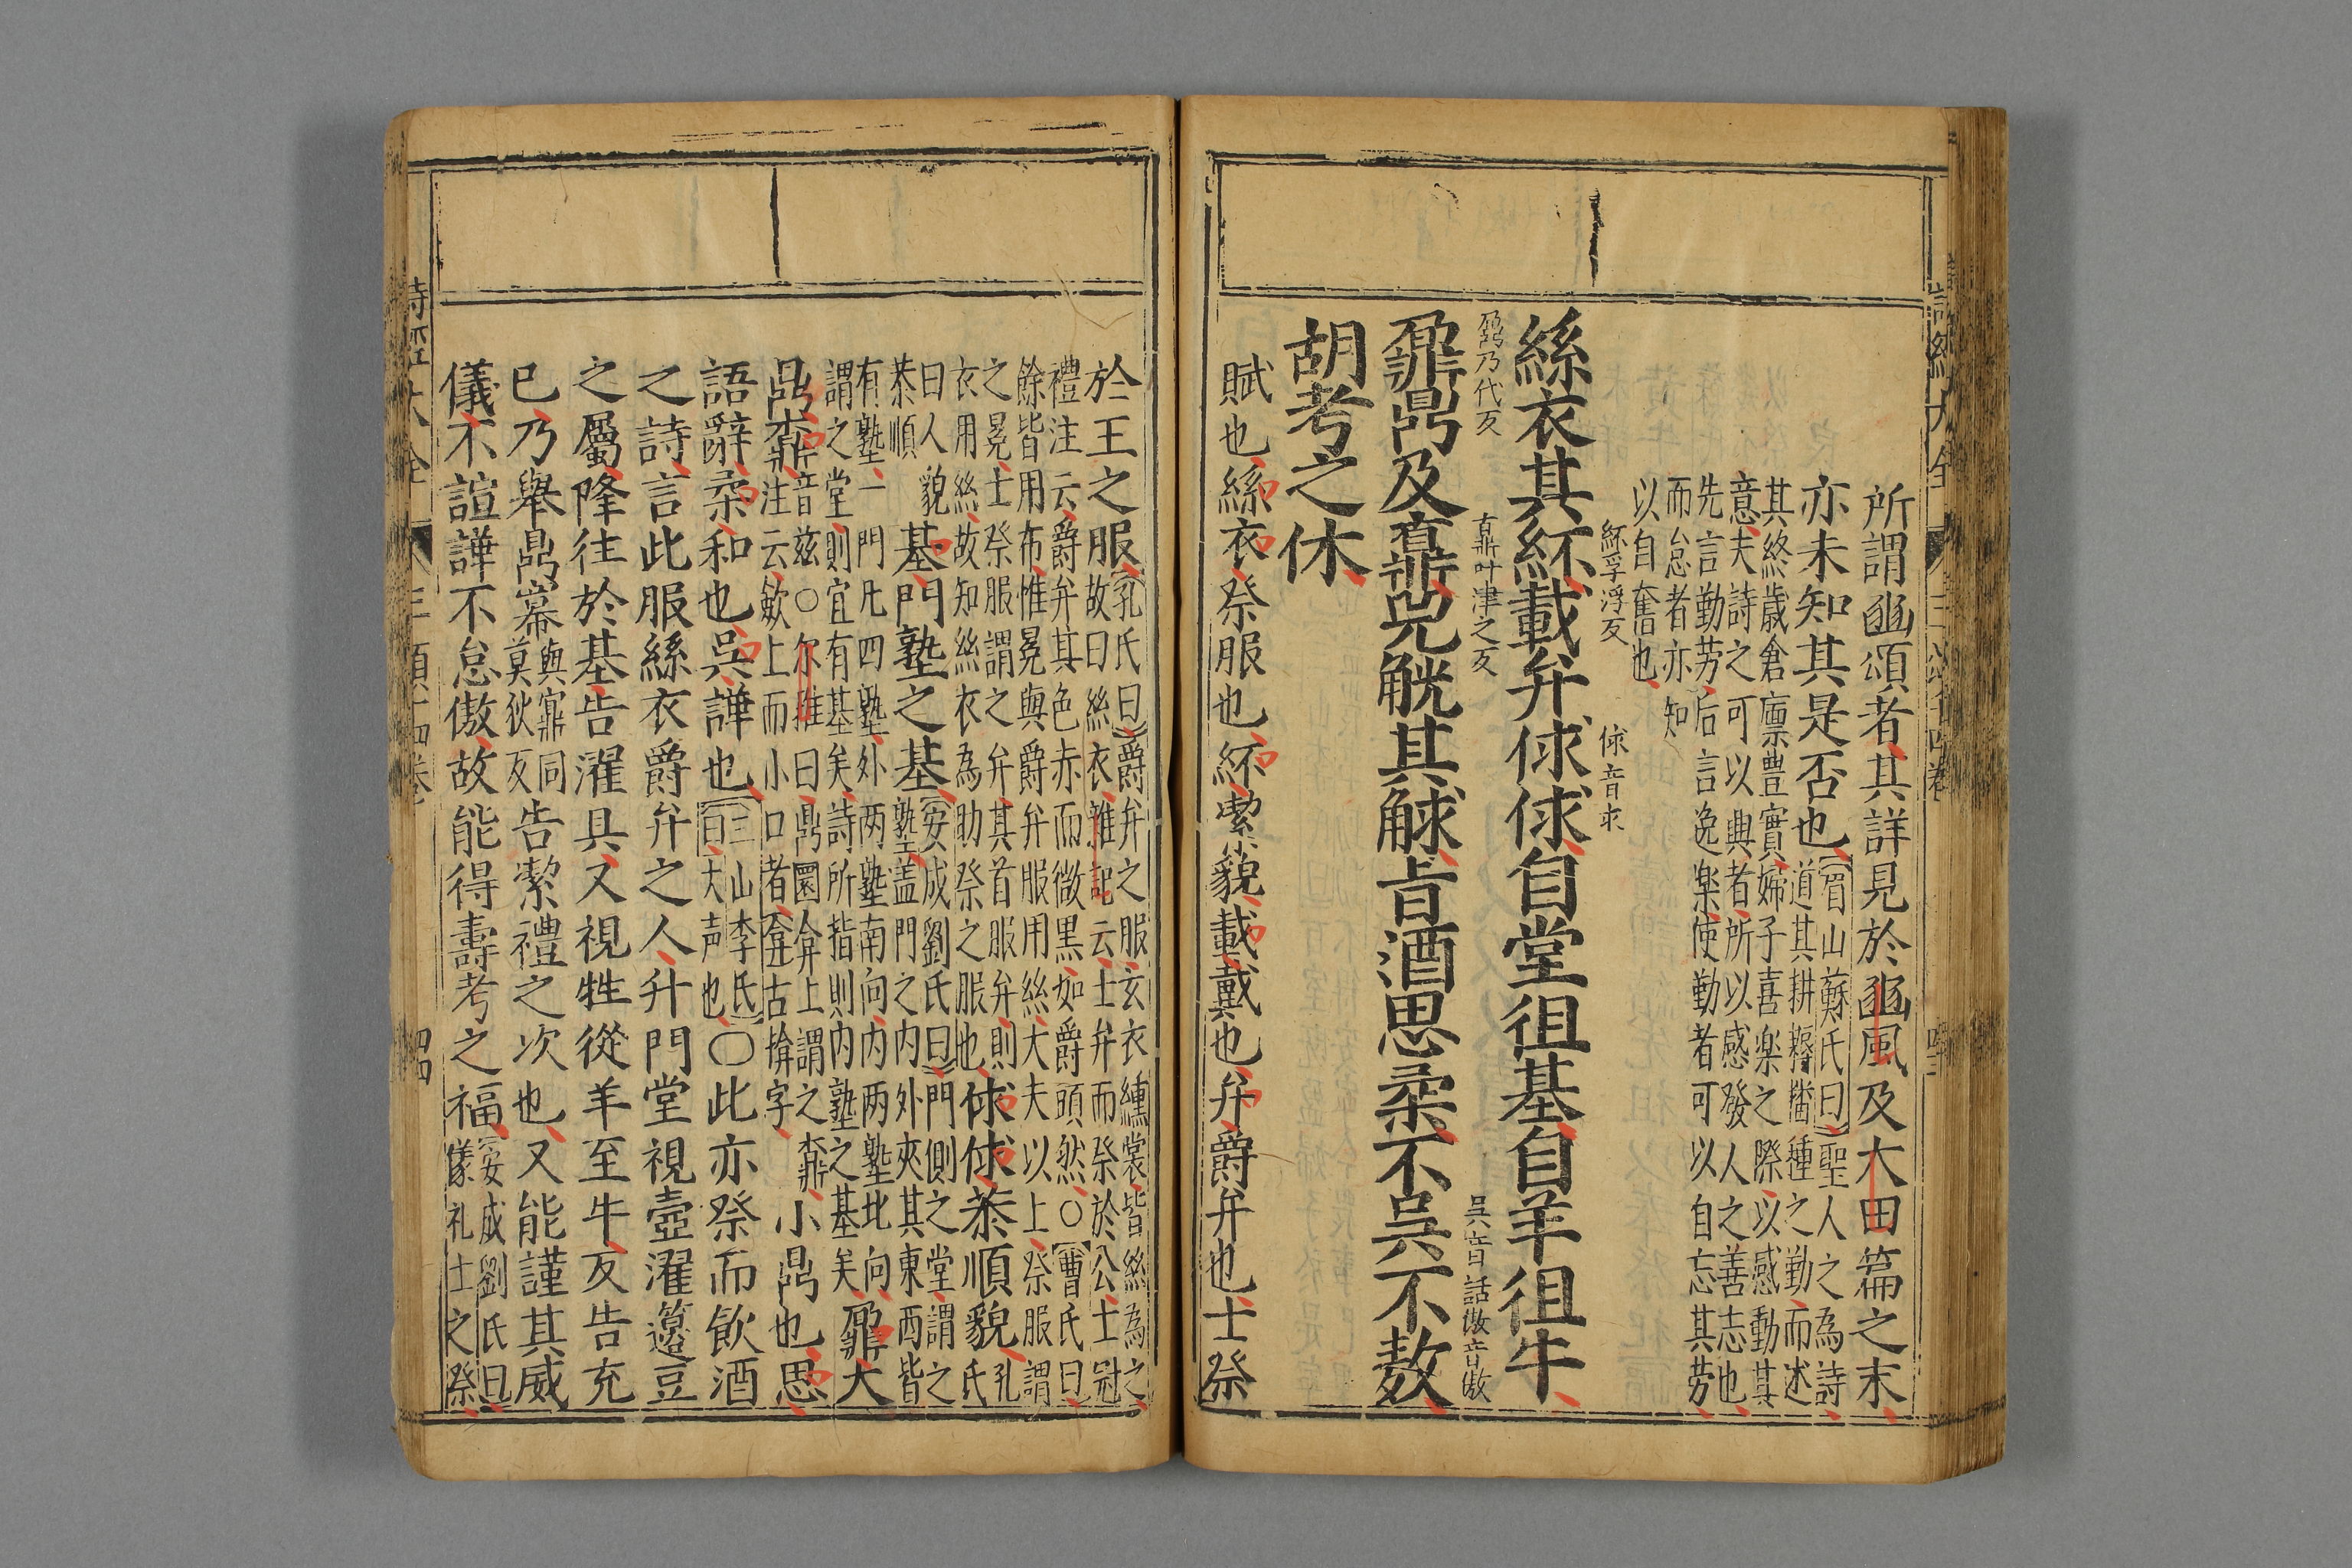 所謂豳頌者其詳見於豳風及大田篇之末
亦未知其是否也
眉山蘇氏曰聖人之為詩
道其耕耨播種之勤而述
其終歲倉廩豊實婦子喜楽之際以感動其
意夫詩之可以興者所以感發人之善志也
先言勤劳后言逸楽使勤者可以自忘其劳
而怠者亦知
以自奮也
紑孚浮反
俅音求
絲衣其紑載弁俅俅自堂徂基自羊徂牛
鼐乃代反
鼒叶津之反
吳音話傲音傲
鼐鼎及鼒兕觥其觩旨酒思柔不吳不敖
胡考之休
賦也絲衣祭服也紑潔貌載戴也弁爵弁也士祭
於王之服
孔氏曰爵弁之服玄衣纁裳皆絲為之
故曰絲衣雜記云士弁而祭於公士冠
禮注云爵弁其色赤而微黑如爵頭然○曹氏曰
餘皆用布惟冕與爵弁服用絲大夫以上祭服謂
之冕士祭服謂之弁其首服弁則
衣用絲故知絲衣為助祭之服也
俅俅恭順貌
孔氏
曰人貌
恭順
基門塾之基
安成劉氏曰門側之堂謂之
塾盖門之内外夾其東西皆
有塾一門凡四塾外两塾南向内两塾北向
謂之堂則宜有基矣詩所指則内塾之基矣
鼐大
鼎鼒
音兹○尔雅曰鼎圜弇上謂之鼒
注云斂上而小口者弇古揜字
小鼎也思
語辭柔和也吳譁也
三山李氏
曰大声也
○此亦祭而飲酒
之詩言此服絲衣爵弁之人升門堂視壺濯籩豆
之屬降往於基告濯具又視牲從羊至牛反告充
已乃舉鼎冪
與鼏同
莫狄反
告潔禮之次也又能謹其威
儀不諠譁不怠傲故能得壽考之福
安成劉氏曰
儀礼士之祭